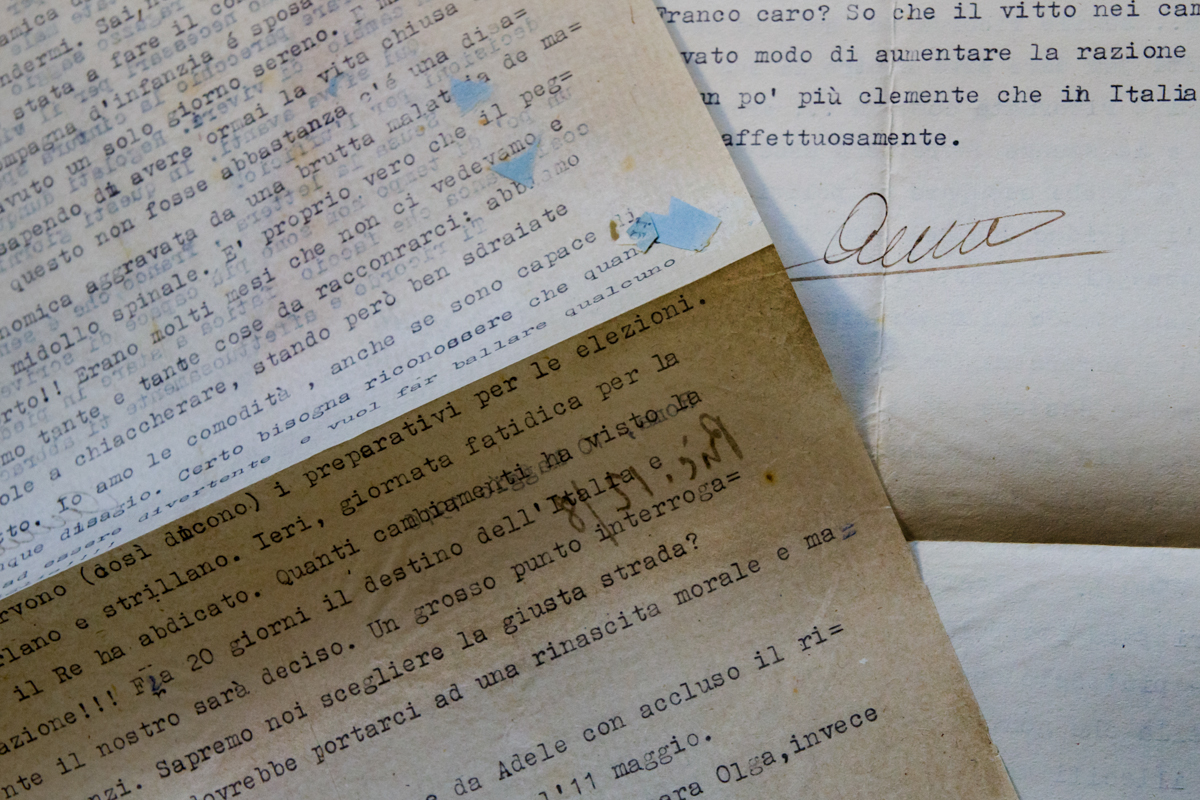 ndermi. Sai,
stata a fare il
ompagna d'infanzia é sposa
avuto un solo giorno sereno.
sapendo di avere ormai la vita chiusa
questo non fosse abbastanza c'é una disa=
nomica aggravata da una brutta malat ia de ma=
midollo spinale. E' proprio vero che il peg=
erto!! Erano molti mesi che non ci vedevamo e
mo tante e tante cose da racconrarci: abb mo
ole a chiaccherare, stando però ben sdraiate
tto. Io amo le comodità , anche se sono capace di
que disagio. Certo bisogna riconossere che quan
ad essere divertente e vuol far ballare qualcuno
Franco caro? So che il vitto nei cam
vato modo di aumentare la razione
un po' più clemente che in Italia
affettuosamente.
rvono (così dicono) i preparativi per le elezioni.
rlano e strillano. Ieri, giornata fatidica per la
il Re ha abdicato. Quanti cambiamenti ha visto la
azione!!! Fra 20 giorni il destino dell'Italia e
nte il nostro sarà deciso. Un grosso punto interroga=
nzi. Sapremo noi scegliere la giusta strada?
dovrebbe portarci ad una rinascita morale e ma=
e da Adele con accluso il ri=
l'11 maggio.
ara Olga,invece